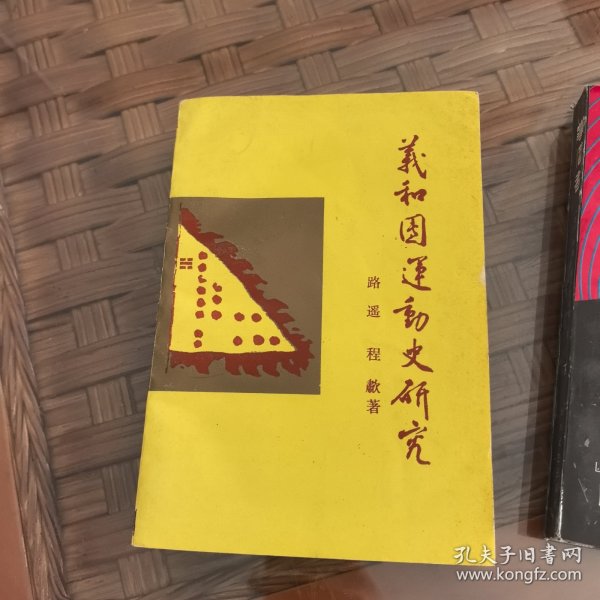 義和团運動史研究
路遥 程歗著
孔夫子旧书网
www.kongfz.com